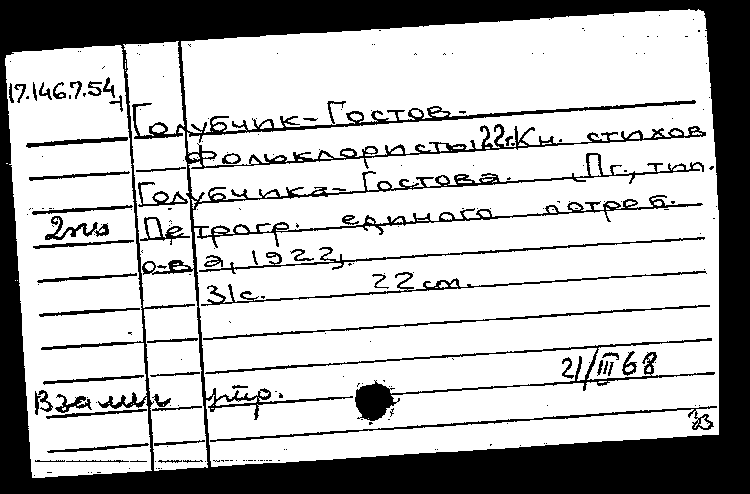 17.146.7.54
Голубчик-Гостов.
Фольклористы, 22г. Кн. стихов
Голубчика-Гостова. Пг., тип.
2 экз Петрогр. единого потреб.
о-ва, 1922.
31с. 22 см.
21/III 68
Взамен утр.